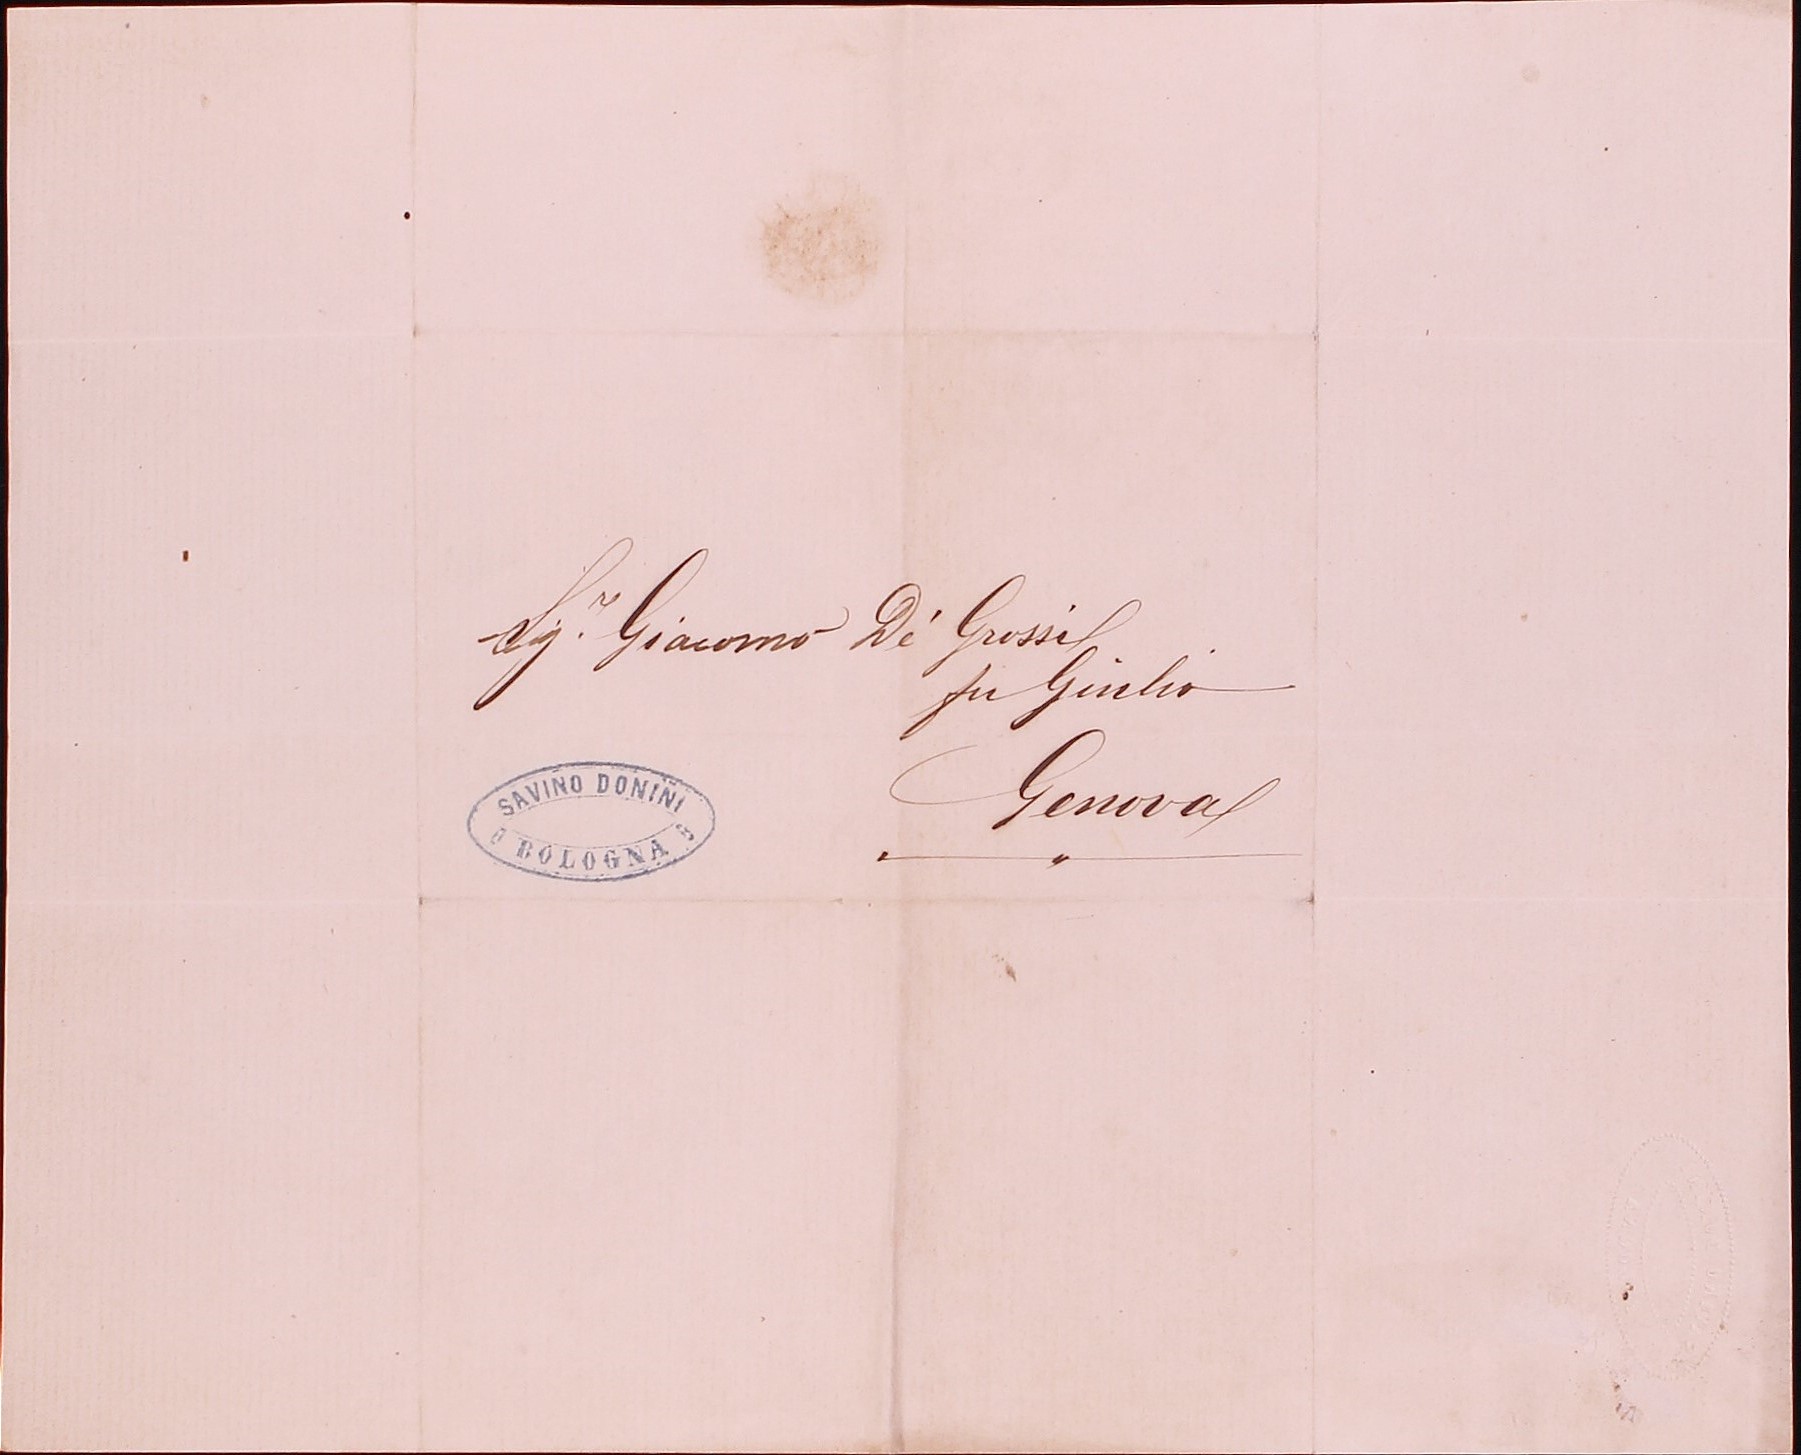 Sig.r Giacomo De' Grossi
fu Giulio
Genova
SAVINO DONINI
BOLOGNA